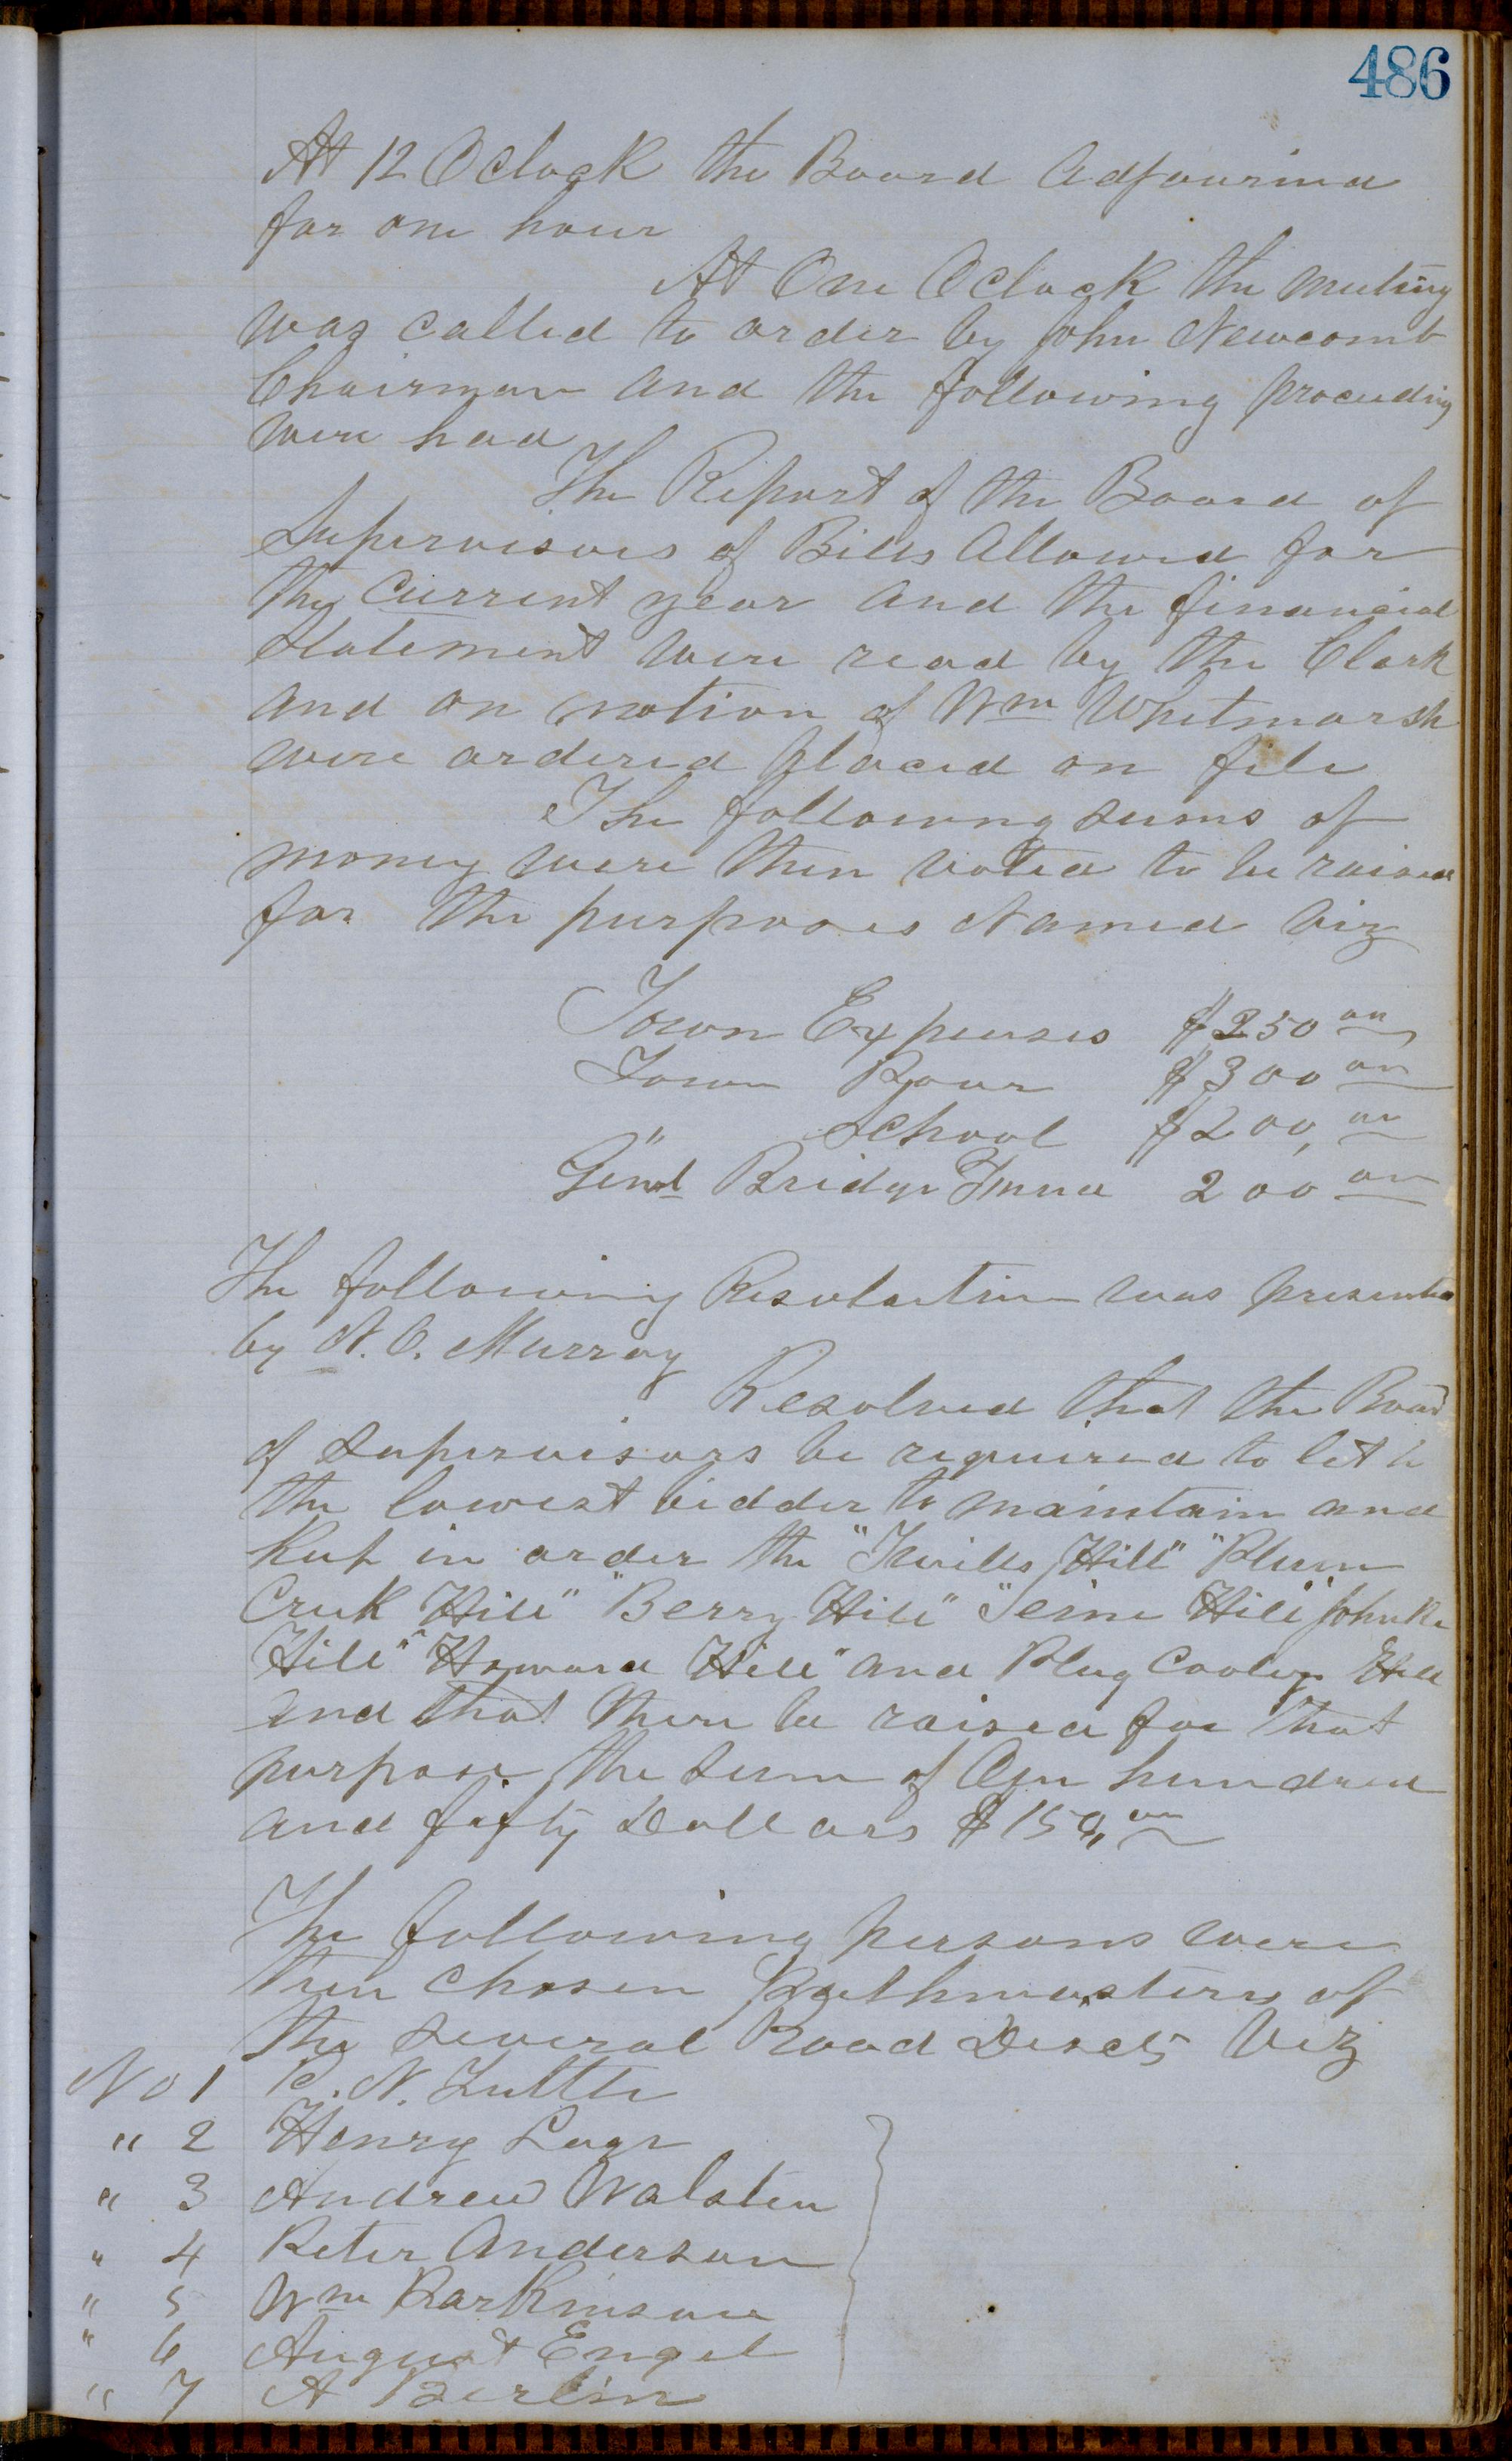 486
At 12 O Clock the Board Adjourned
for one hour
At One O Clock the meeting
was called to order by John Newcomb
Chairman and the following proceeding
were had
The Report of the Board of
Supervisors of Bills Allowed for
the Current year and the financial
Statement were read by the Clerk
and on motion of Wm Whitmarsh
were ordered placed on file
The following sums of
money were then voted to be raised
for the purposes Named viz
Town Expenses $250 oo
Town Poor $300 oo
" School $200, oo
Genl Bridge Fund 200 oo
The following Resolution was presented
by N. C. Murray
Resolved that the Board
of Supervisors be required to let to
the lowest bidder to maintain and
Keep in order the " Hill" "Plum
Creek Hill" "Berry Hill" " Hill"
Hill" "Howard Hill" and Plug Cooley Hill
and that there be raised for that
purpose the sum of One hundred
and fifty Dollars $150,, oo
The following persons were
then chosen Pathmasters of
the several Road Disct's Viz
No 1 N. Tuttle
" 2 Henry
" 3 Andrew Walsten
" 4 Peter Anderson
" 5 Wm Parkinson
" 6 August Engel
" 7 A Berlin